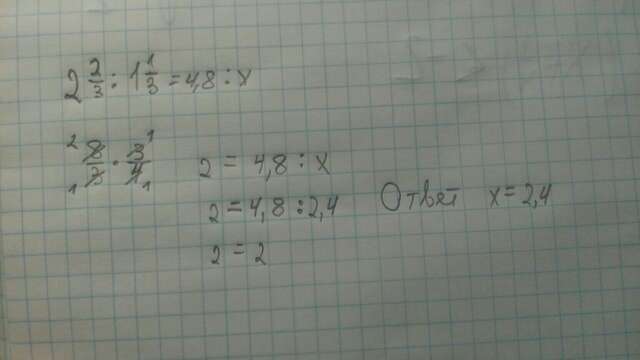 2 2/3 : 1 1/3 = 4,8 : x
2 8/3 1 · 3/4 1 1 2 = 4,8 : x
2 = 4,8 : 2,4 Ответ x = 2,4
2 = 2